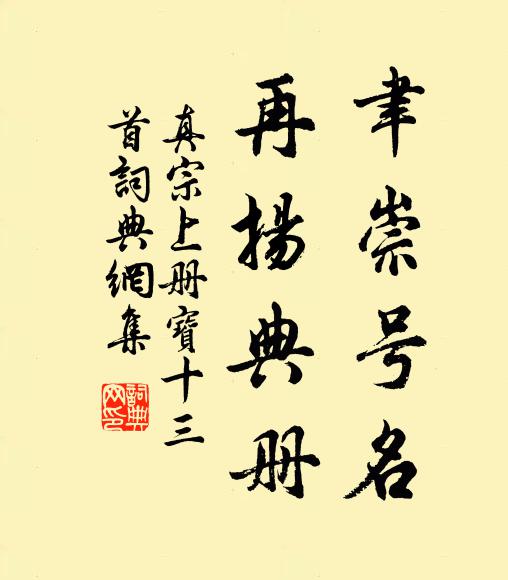 聿崇号名
再揚典册
真宗上册寶十三
首詞典網集
詞典
网印